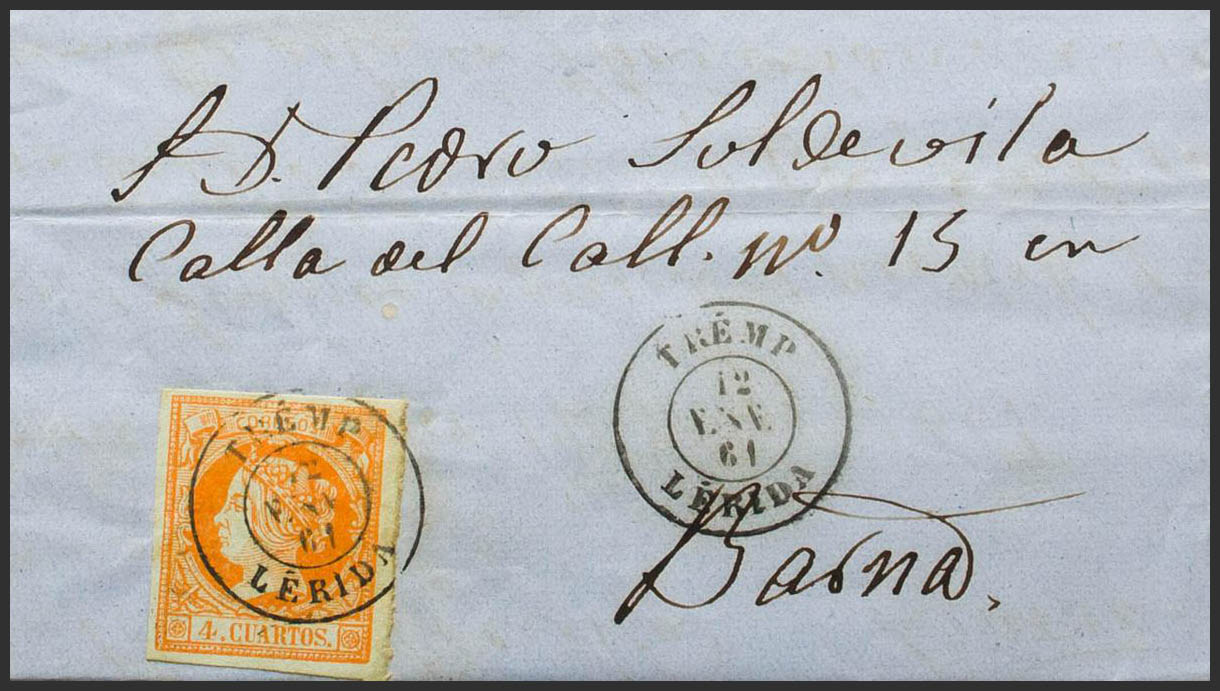 A D. Pedro Soldevila
Calla del Call. nº. 15 en
TRÉMP
12
ENE
61
LÉRIDA
Barna.
CORREOS
TRÉMP
12
ENE
61
LÉRIDA
4. CUARTOS.